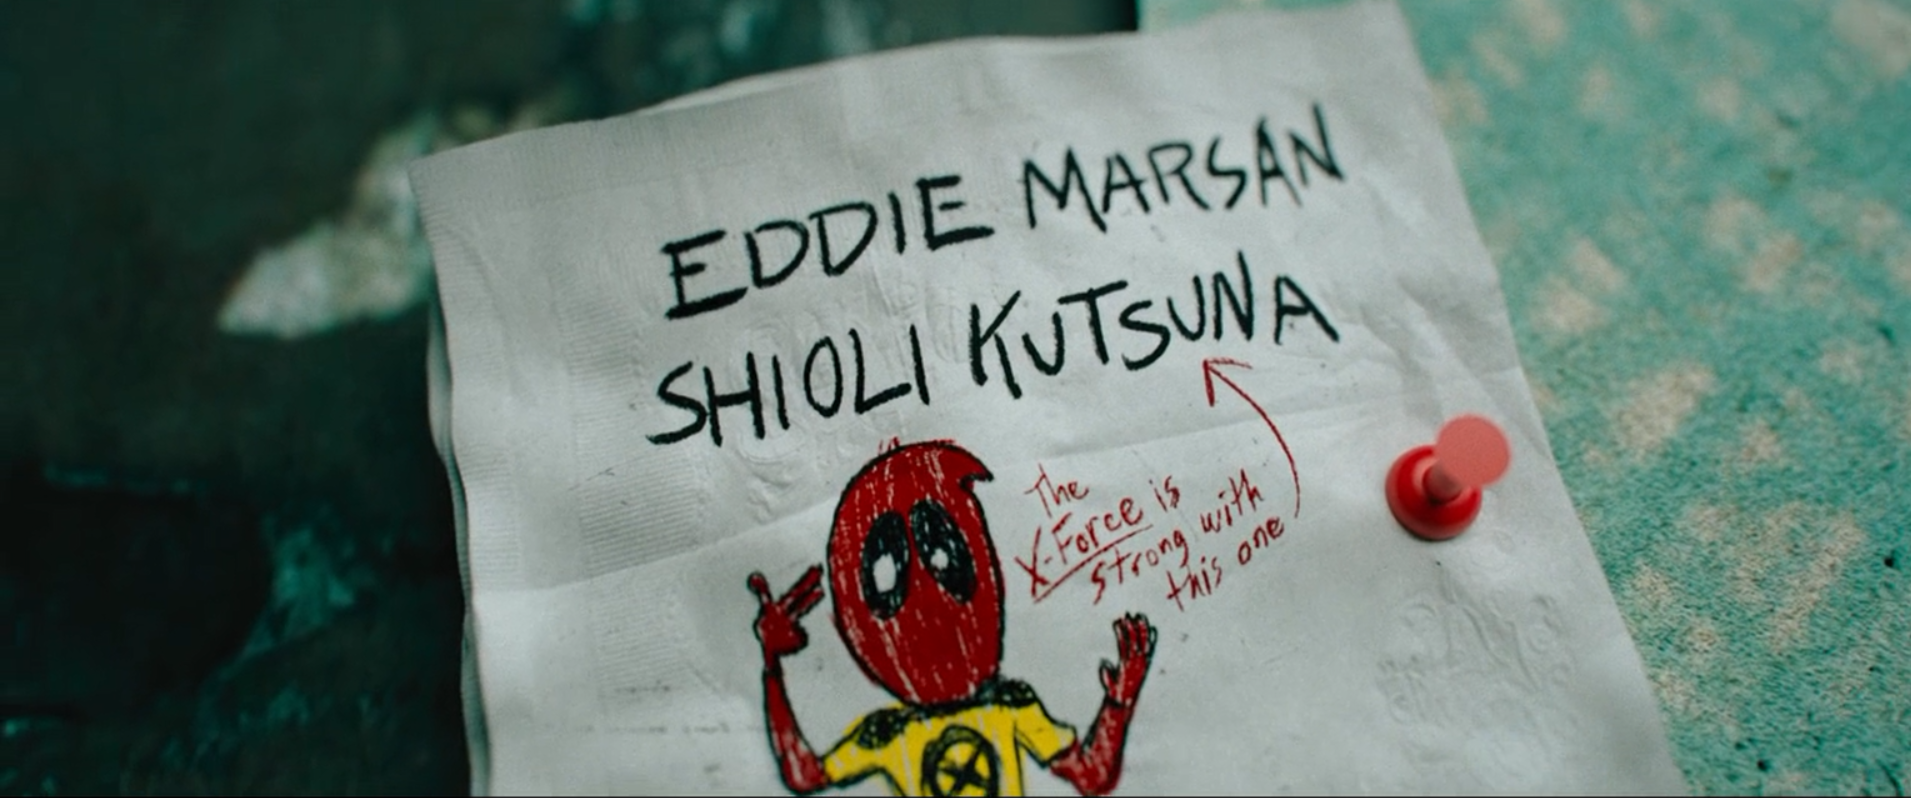 EDDIE MARSAN
SHIOLI KUTSUNA
The
X-Force is
strong with
this one